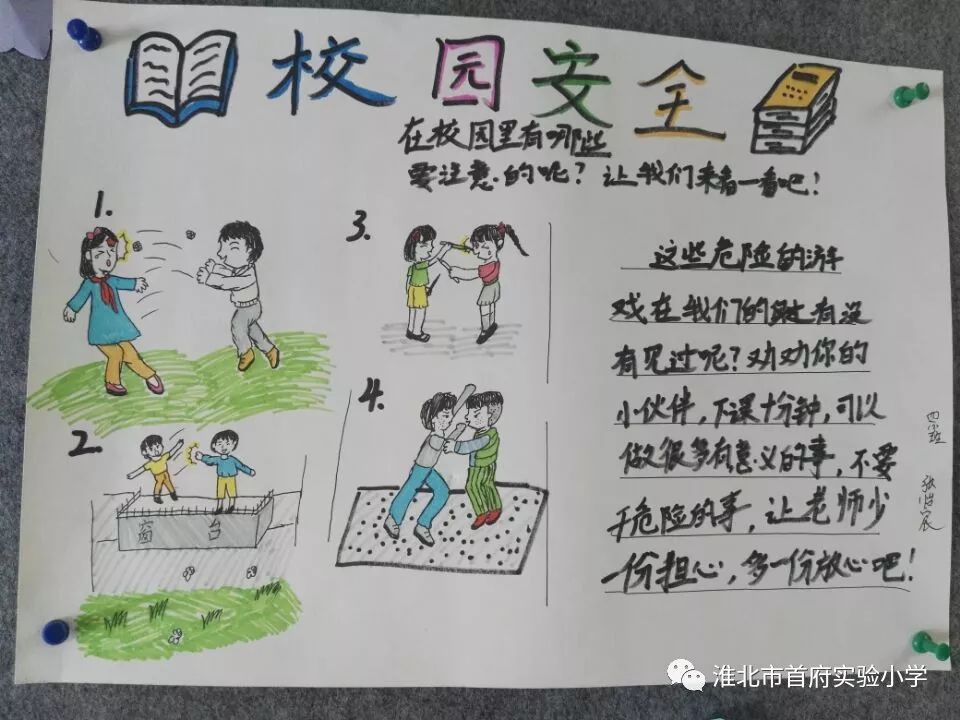 校园安全
在校园里有哪些
要注意的呢？让我们来看一看吧！
1.
2.
窗台
3.
4.
这些危险的游
戏在我们的身边有没
有见过呢？劝劝你的
小伙伴，下课十分钟，可以
做很多有意义的事，不要
干危险的事，让老师少
一份担心，多一份放心吧！
淮北市首府实验小学